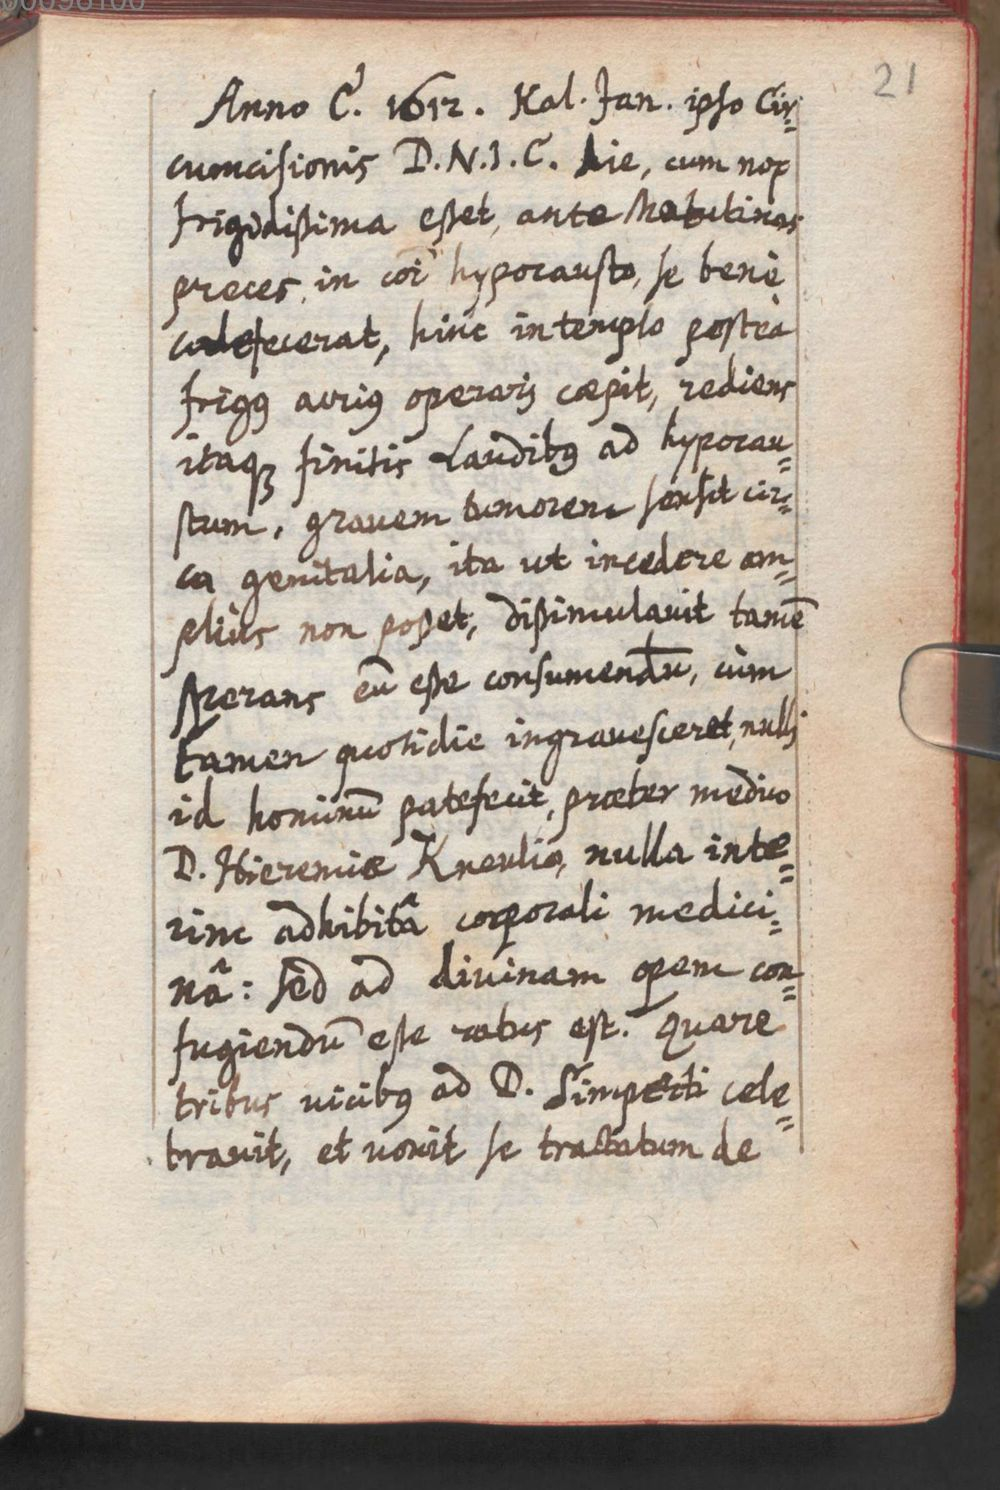 00096100
21
Anno C. 1612. Kal. Jan. ipso Cir=
cumcisionis D.N.I.C. die, cum nox
frigidißima eßet, ante Matutinas
preces, in coi hypocausto, se benè
calefecerat, hinc in templo posteà
frigꝰ acriꝰ operari cæpit, rediens
itaqꝫ finitis Laudibꝰ ad hypocau=
stum, grauem tumorem sensit cir=
ca genitalia, ita ut incedere am=
plius non poßet, dißimulauit tamē
sperans eū eße consumendū, cùm
tamen quotidie ingrauesceret, nulli
id hominū patefecit, præter medico
D. Hieremiæ nulla inte=
rim adhibitâ corporali medici=
nâ: sed ad diuinam opem con=
fugiendū eße ratus est. Quare
tribus vicibꝰ ad D. Simperti cele=
brauit, et vouit se tractatum de